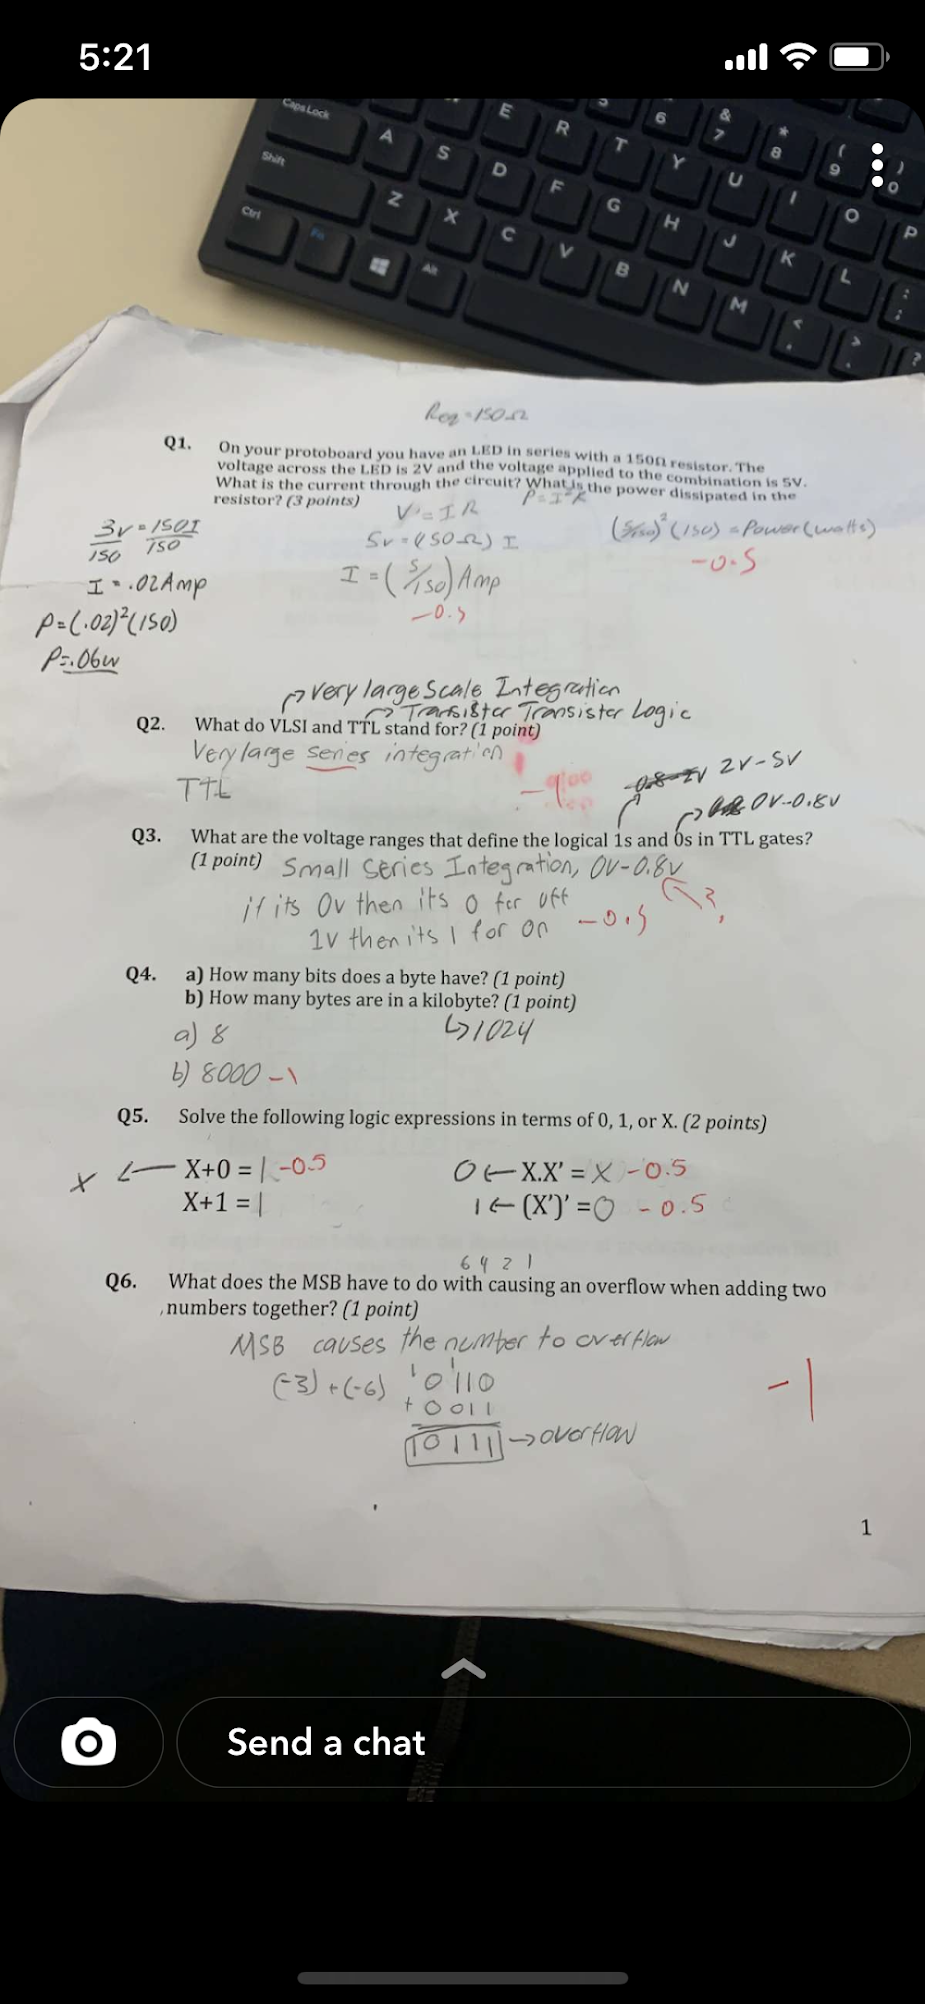 5:21
Caps Lock
E R T 6 & 7 * 8 ( 9 ) 0
A S D F G Y U I O P
Shift
Z X C V B H J K L
Ctrl Fn Alt N M
Req = 150Ω
Q1. On your protoboard you have an LED in series with a 150Ω resistor. The
voltage across the LED is 2V and the voltage applied to the combination is 5V.
What is the current through the circuit? What is the power dissipated in the
resistor? (3 points)
P = I²R
V = IR
3v = 150I
150 150
5v = (150Ω) I
(5/150)² (150) = Power (watts)
-0.5
I = .02Amp
I = (5/150) Amp
-0.5
P=(.02)²(150)
P=.06w
Very large Scale Integration
Transistor Transistor Logic
Q2. What do VLSI and TTL stand for? (1 point)
Very large series integration
TTL
2V-5V
0V-0.8V
Q3. What are the voltage ranges that define the logical 1s and 0s in TTL gates?
(1 point) Small Series Integration, 0V-0.8V
if its 0v then its 0 for off
-0.5
?
1v then its 1 for on
Q4. a) How many bits does a byte have? (1 point)
b) How many bytes are in a kilobyte? (1 point)
a) 8
1024
b) 8000 -1
Q5. Solve the following logic expressions in terms of 0, 1, or X. (2 points)
X ← X+0 = 1 -0.5
0 ← X.X' = X -0.5
X+1 = 1
1 ← (X')' = 0 -0.5
6 4 2 1
Q6. What does the MSB have to do with causing an overflow when adding two
numbers together? (1 point)
MSB causes the number to overflow
(-3) + (-6)
1 1
0110
+ 0011
10111 → overflow
-1
1
Send a chat